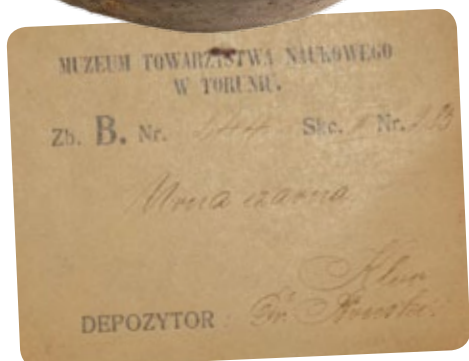 MUZEUM TOWARZYSTWA NAUKOWEGO
W TORUNIU.
Zb. B. Nr. 144 Skc. Nr.
Urna czarna
DEPOZYTOR